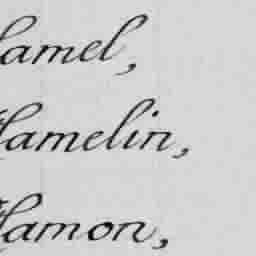 Hamel,
Hamelin,
Hamon,